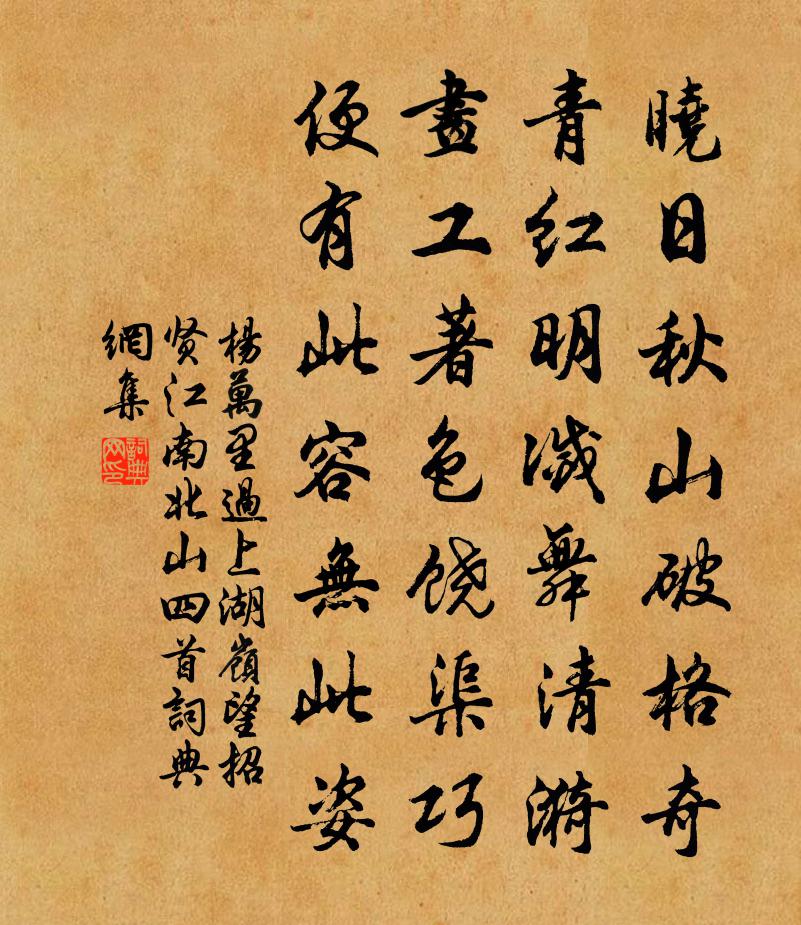 曉日秋山破格奇
青紅明滅舞清漪
畫工著色饒渠巧
便有此容無此姿
楊萬里過上湖嶺望招
贤江南北山四首詞典
網集
詞典网印